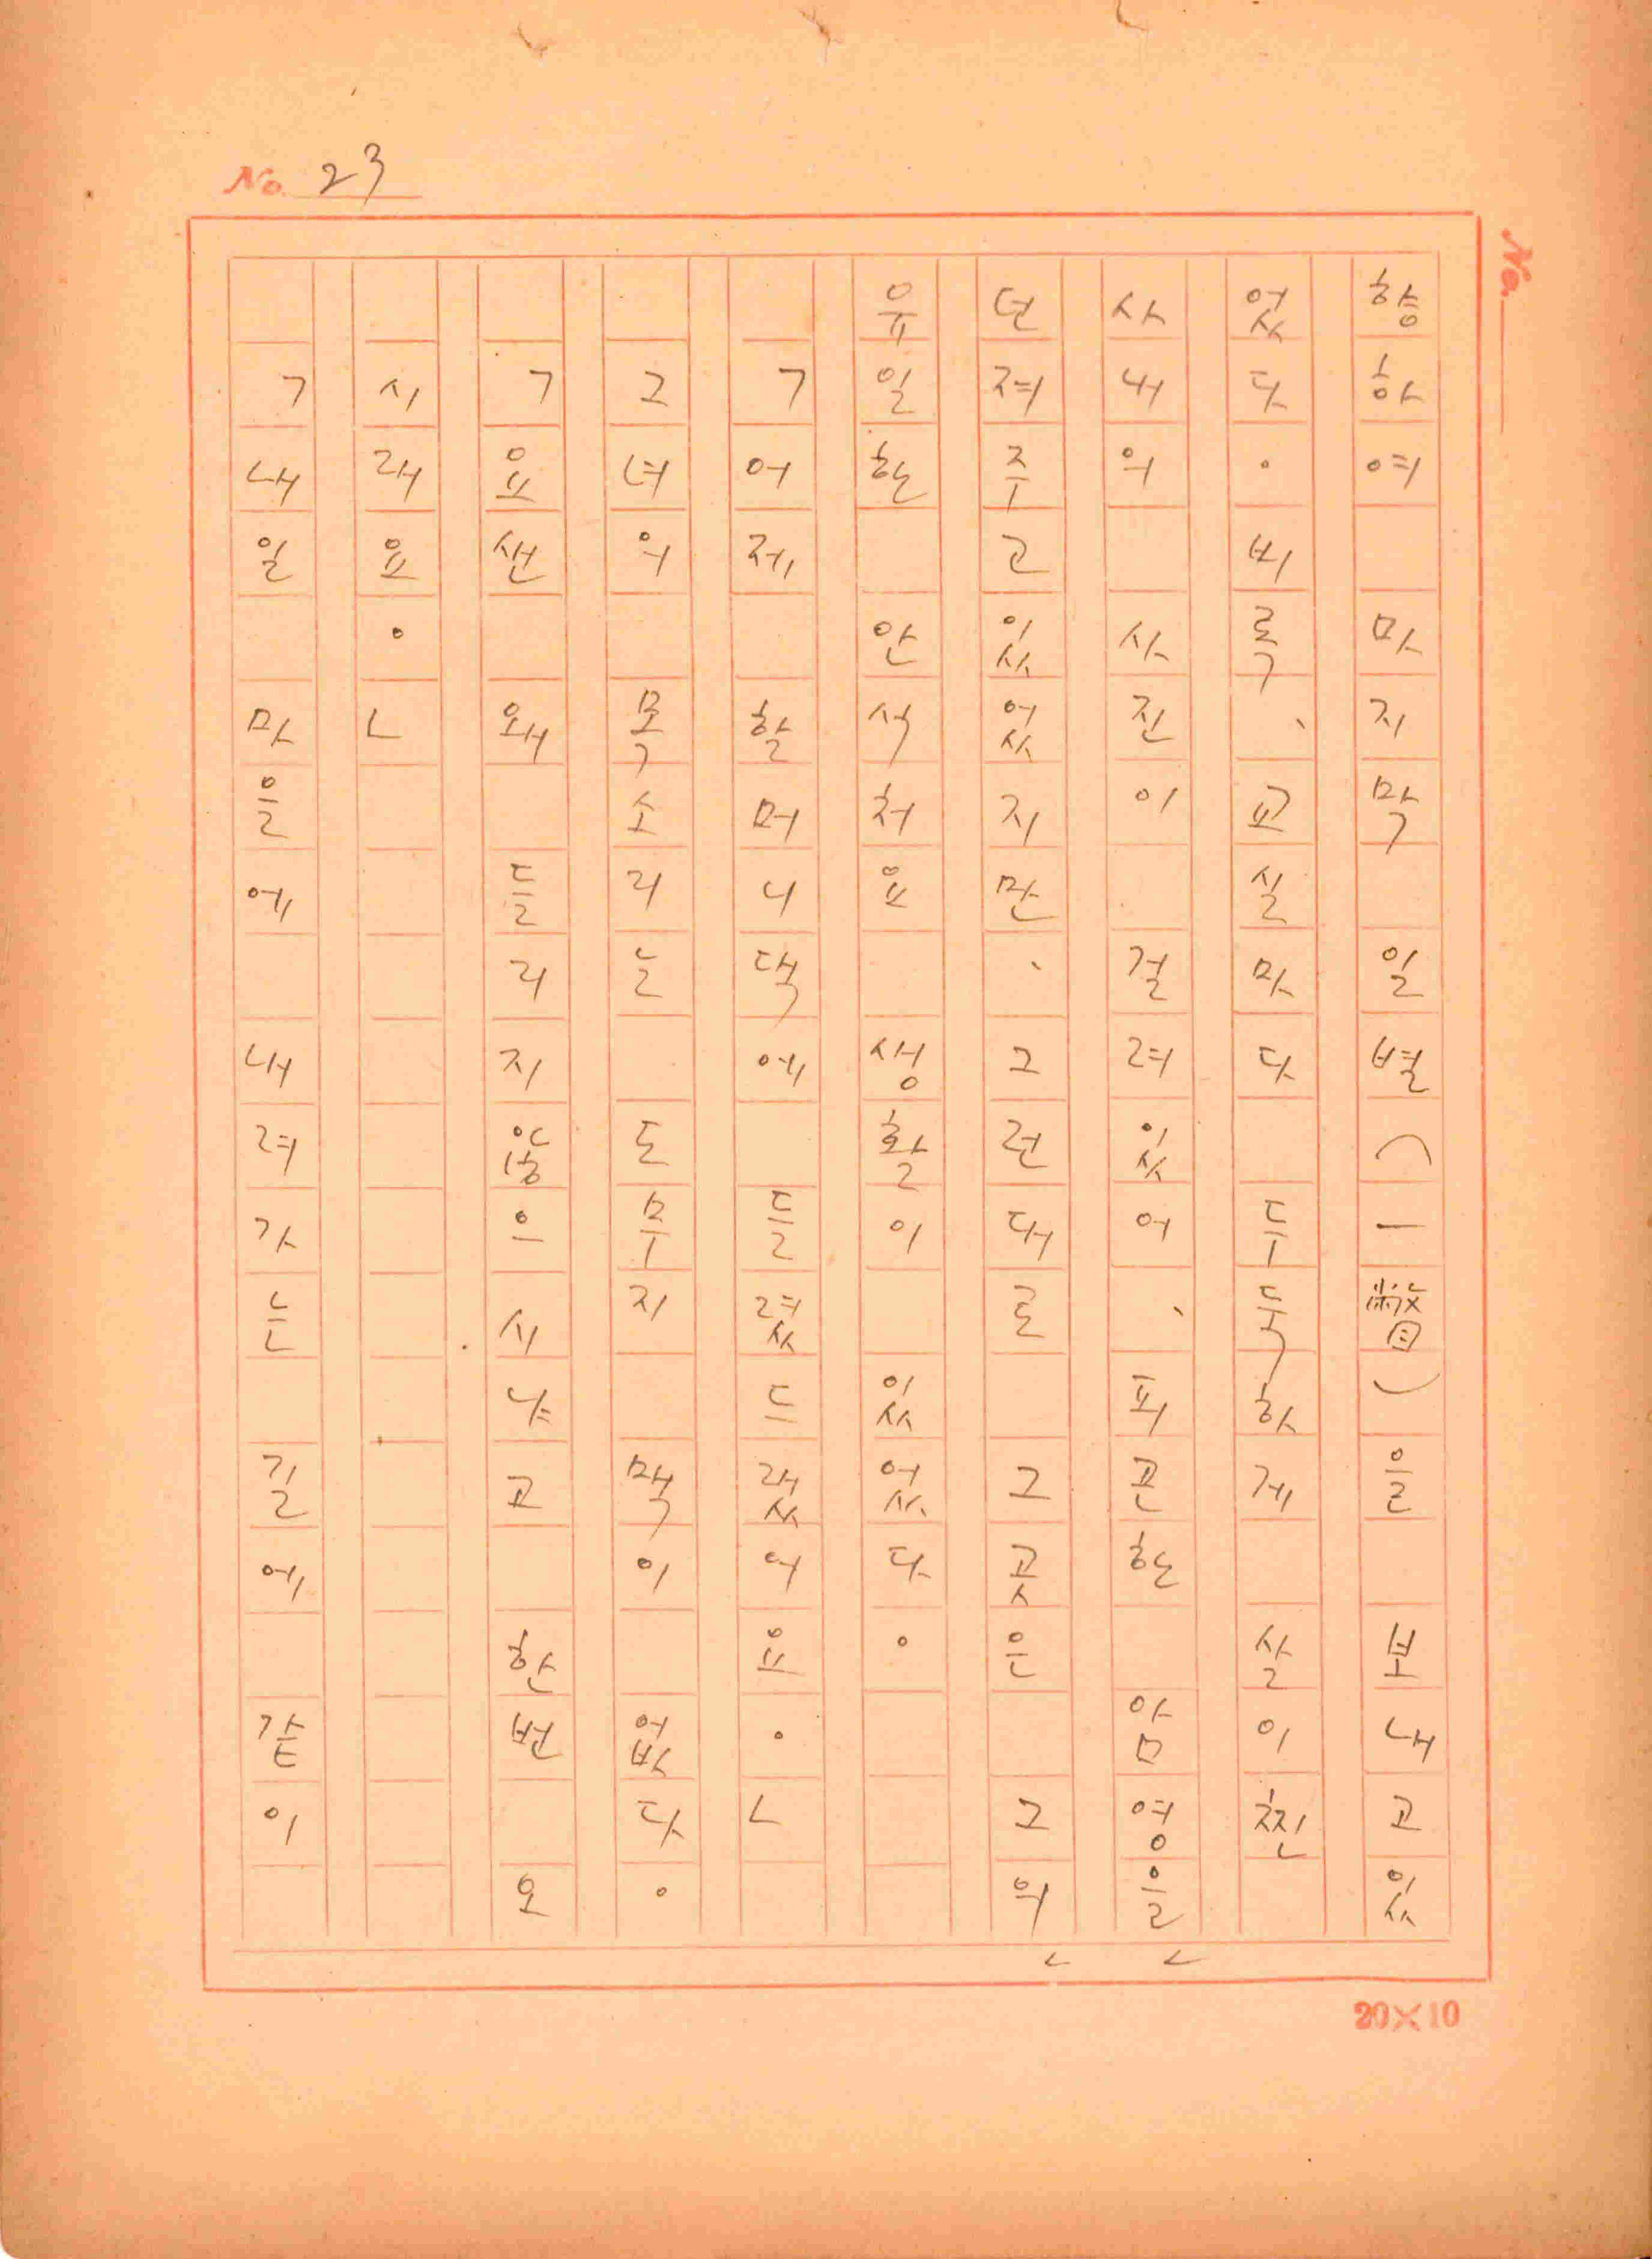 No. 23
No.
향하여 마지막 일별(一瞥)을 보내고 있
었다. 비록, 교실마다 두둑하게 살이 찐
사내의 사진이 걸려있어, 피곤한 암영을
던져주고 있었지만, 그런대로 그곳은 그의
유일한 안식처요 생활이 있었다.
「어제 할머니댁에 들렸드랬어요.」
그녀의 목소리는 도무지 맥이 없다.
「요샌 왜 들리지 않으시냐고 한번 오
시래요.」
「내일 마을에 내려가는 길에 같이
20×10